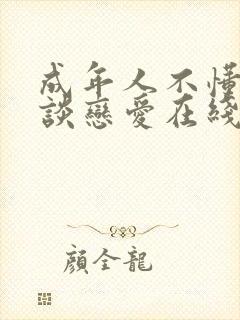 成年人不懂
談戀愛在綫
顏全龍